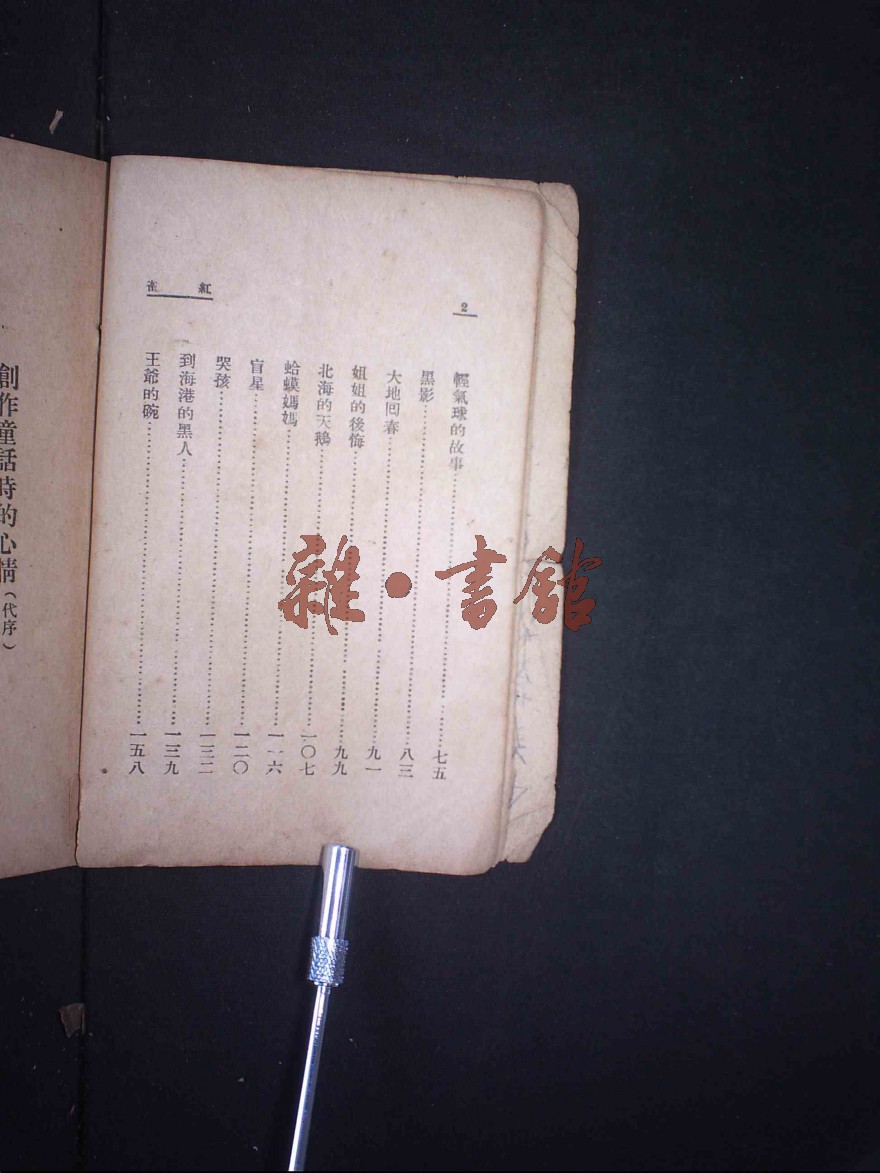 紅雀
2
輕氣球的故事 七五
黑影 八三
大地回春 九一
姐姐的後悔 九九
北海的天鵝 一〇七
蛤蟆媽媽 一一六
盲星 一二〇
哭孩 一三二
到海港的黑人 一三九
王爺的碗 一五八
創作童話時的心情（代序）
雜·書館